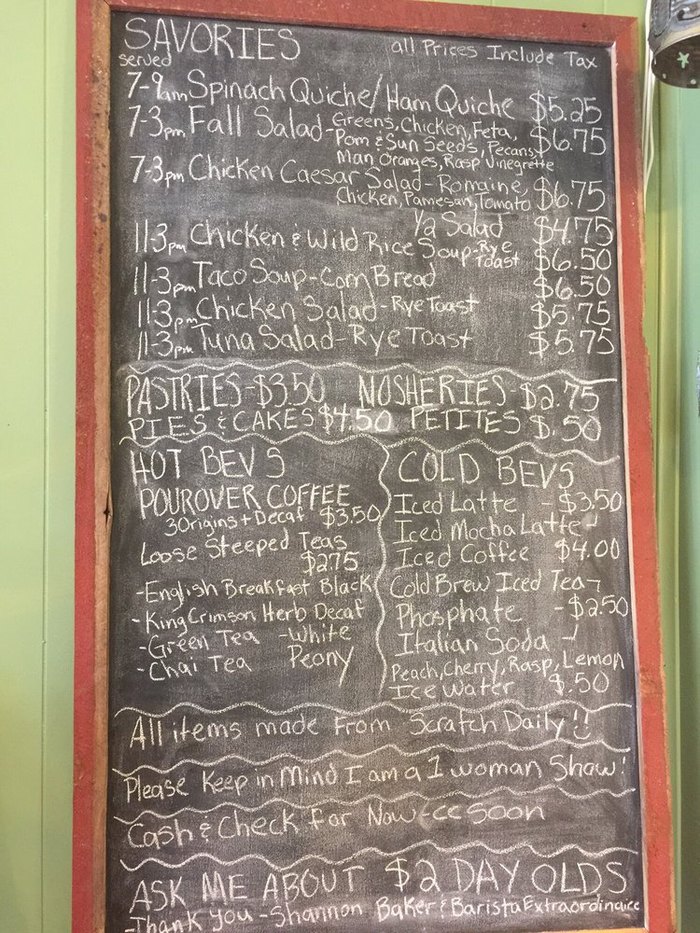 SAVORIES all Prices Include Tax
served
7-9am Spinach Quiche/Ham Quiche $5.25
7-3pm Fall Salad-Greens, Chicken, Feta, $6.75
Pom & Sun Seeds, Pecans,
Man Oranges, Rasp Vinegrette
7-3pm Chicken Caesar Salad-Romaine, $6.75
Chicken, Pamesan, Tomato
½ Salad $4.75
11-3pm Chicken & Wild Rice Soup-Rye Toast $6.50
11-3pm Taco Soup-Corn Bread $6.50
11-3pm Chicken Salad-Rye Toast $5.75
11-3pm Tuna Salad-Rye Toast $5.75
PASTRIES-$3.50 NOSHERIES-$2.75
PIES & CAKES $4.50 PETITES $.50
HOT BEVS
POUROVER COFFEE
3 Origins + Decaf $3.50
Loose Steeped Teas
$2.75
-English Breakfast Black
-King Crimson Herb Decaf
-Green Tea -White
-Chai Tea Peony
COLD BEVS
Iced Latte - $3.50
Iced Mocha Latte-
Iced Coffee $4.00
Cold Brew Iced Tea-
Phosphate -$2.50
Italian Soda
Peach, Cherry, Rasp, Lemon
Ice Water $.50
All items made From Scratch Daily!!
Please Keep in Mind I am a 1 woman Show!
Cash & Check For Now-cc soon
ASK ME ABOUT $2 DAY OLDS
-Thank you -Shannon Baker & Barista Extraordinaire